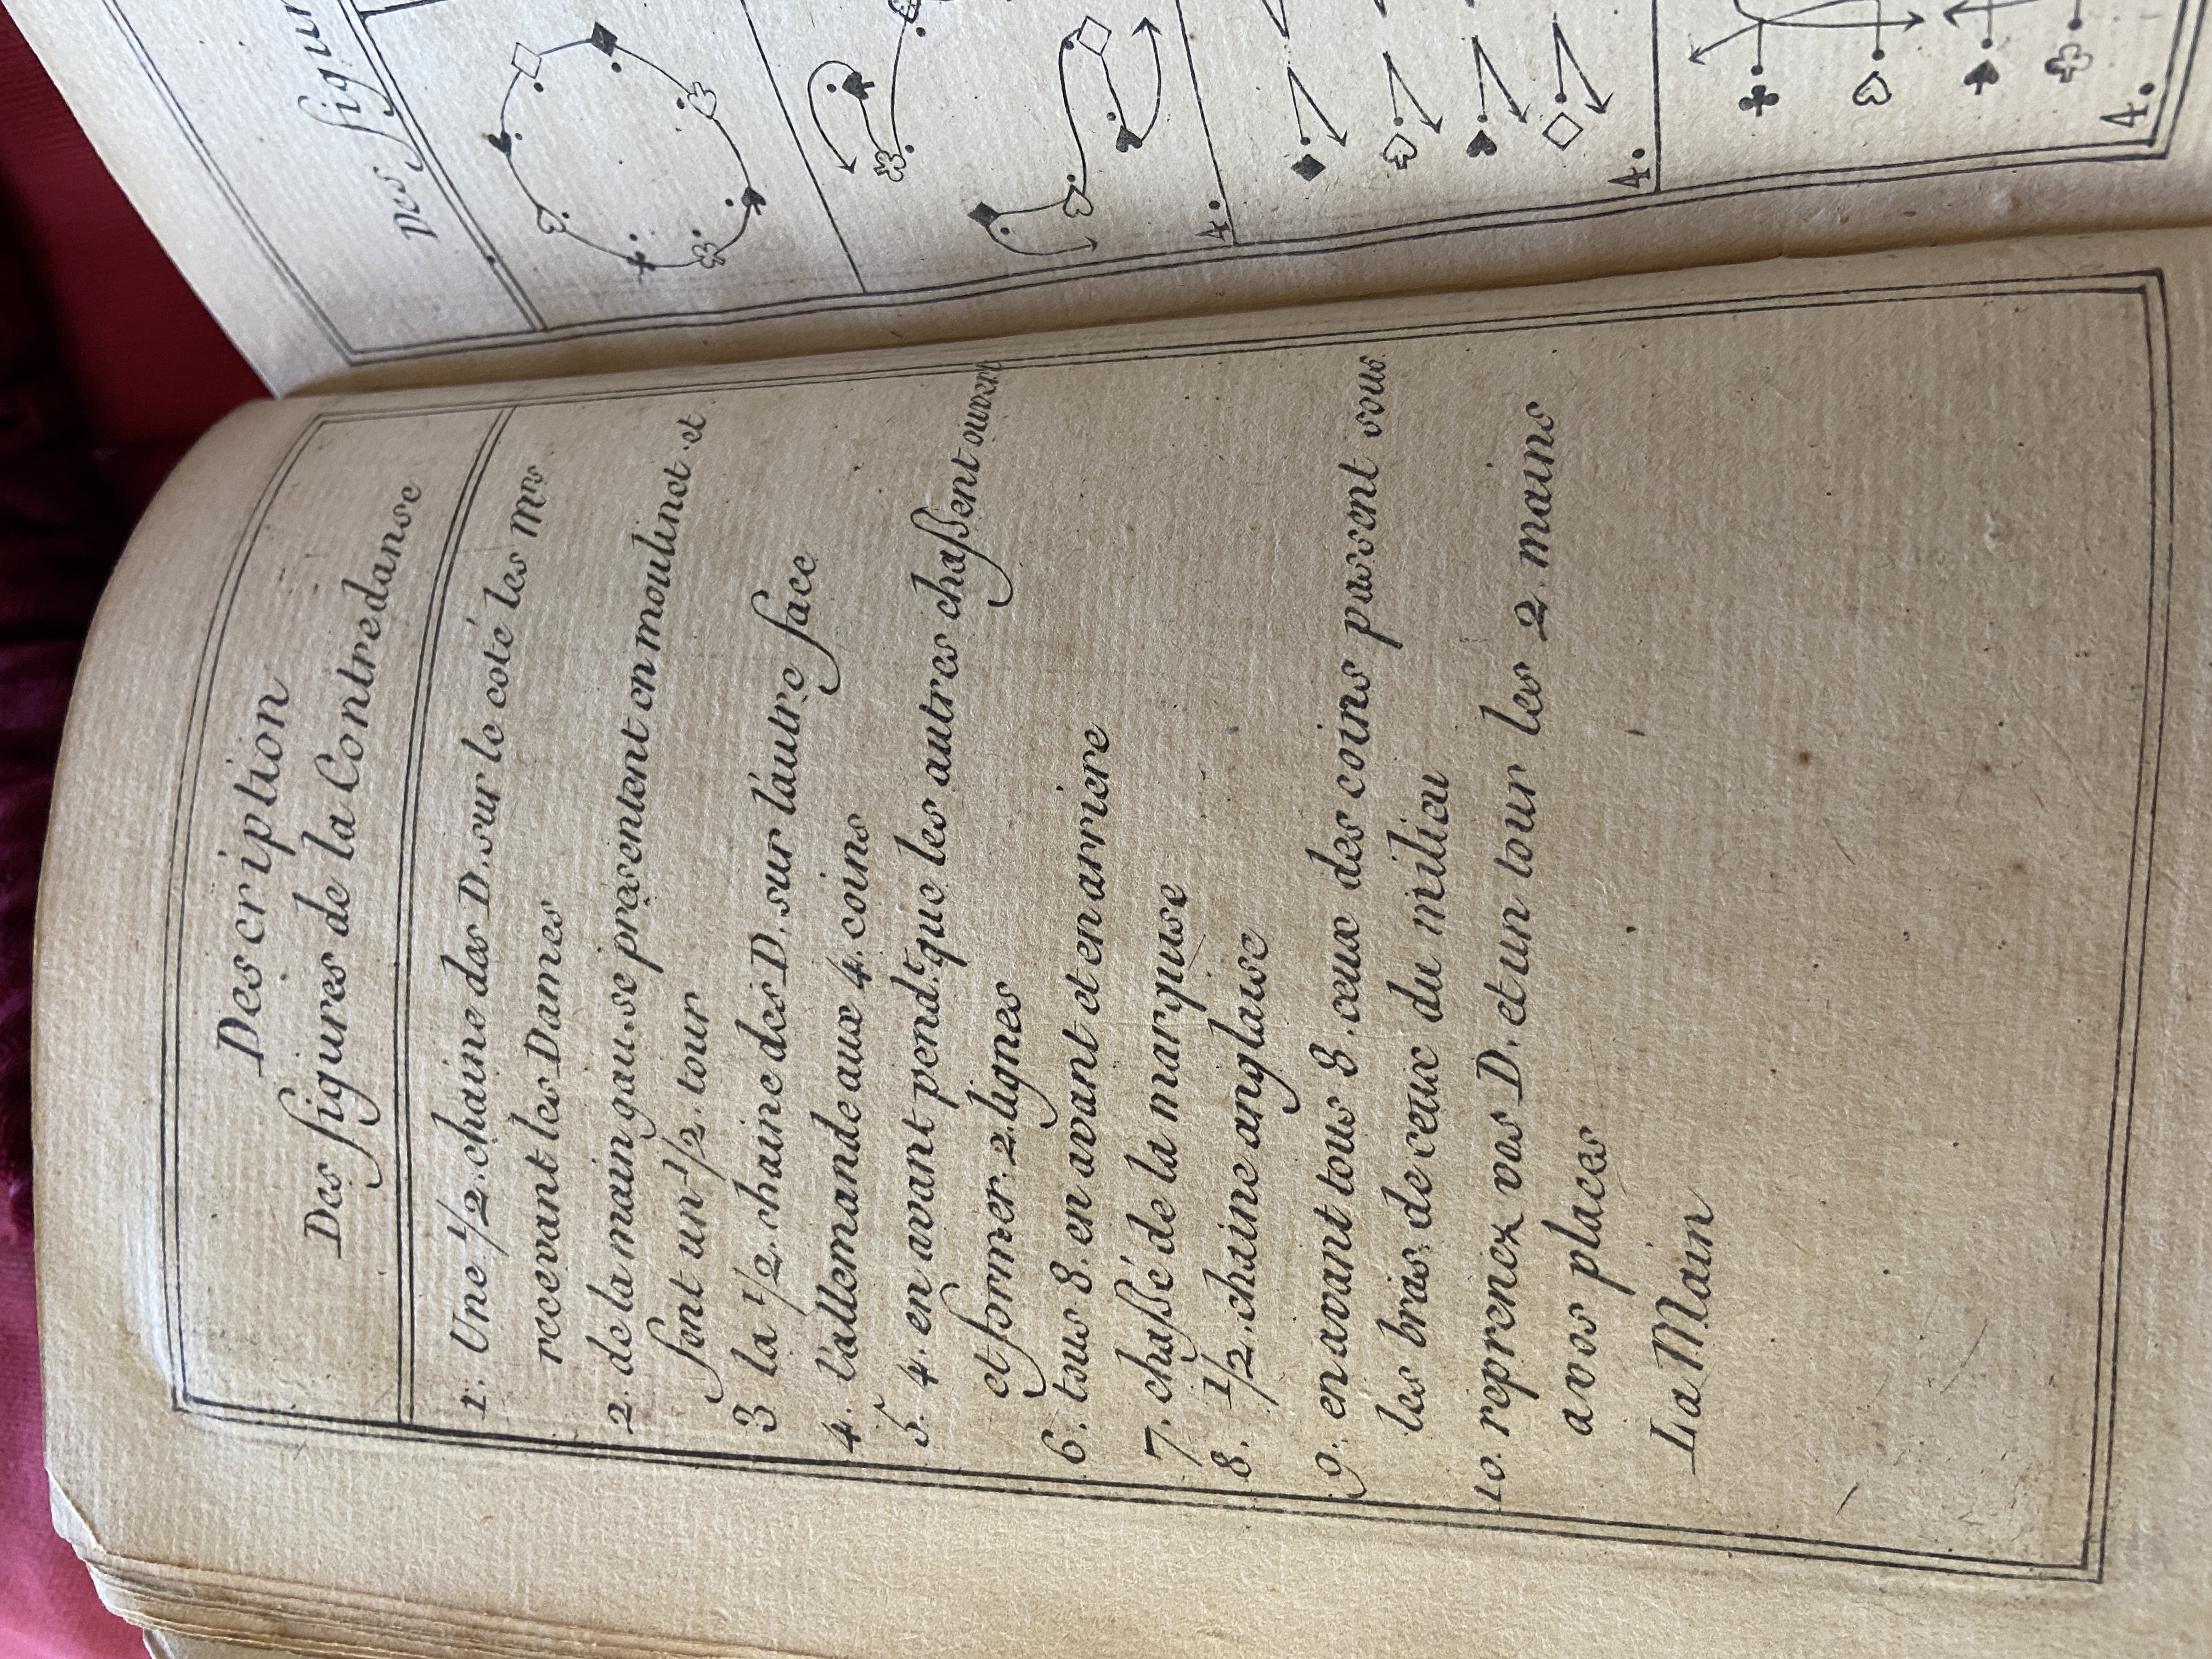 Description
Des figures de la Contredanse
1. Une 1/2. chaine des D. sur le coté les Mrs
recevant les Dames
2. de la main gau. se presentent en moulinet et
font un 1/2. tour
3 la 1/2. chaine des D. sur l'autre face
4. l'allemande aux 4. coins
5. 4. en avant pend.t que les autres chaßent ouvert
et former. 2. lignes
6. tous 8. en avant et en arriere
7. chaßé de la marquise
8. 1/2. chaine anglaise
9. en avant tous 8. ceux des coins passent sous
les bras de ceux du milieu
10. reprenez vos D. et un tour les 2. mains
a vos places
La Main
Des figur
4.
4.
4.